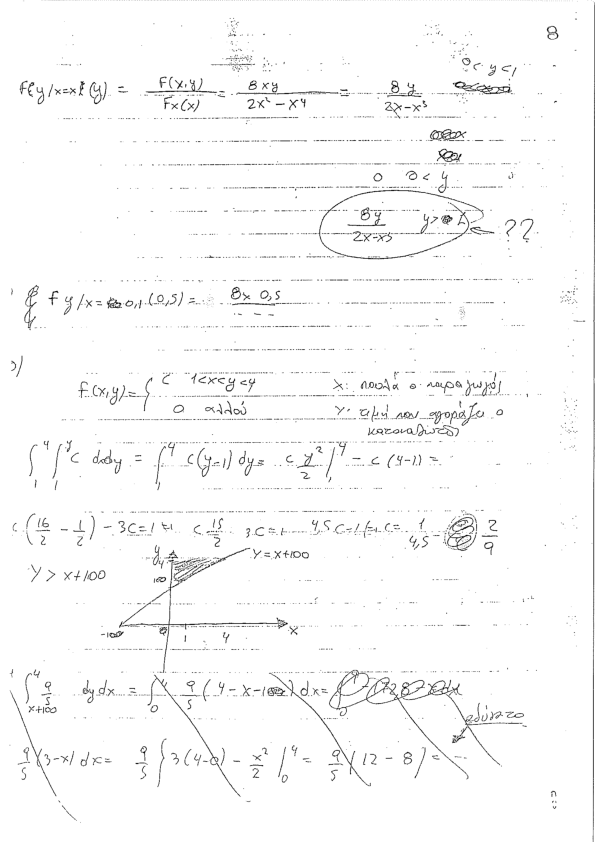 8
f{y/x=x}(y) = F(x,y)/Fx(x) = 8xy/(2x² - x⁴) = 8y/(2x-x³) 0<y<1
0 0<y
8y/(2x-x³) y>1 ← ??
f y/x=0,1 (0,5) = 8x0,5/----
f(x,y)= { c 1<x<y<4 x: πουλά ο παραγωγός
0 αλλού y: τιμή που αγοράζει ο
καταναλωτής
∫₁⁴ ∫₁ʸ c dxdy = ∫₁⁴ c(y-1) dy = c y²/2 |₁⁴ - c (4-1) =
c(16/2 - 1/2) - 3c=1 c 15/2 3c=1 4,5c=1 c= 1/4,5 = 2/9
y > x+100
y
4
100
y=x+100
-100
0
1
4
x
∫ₓ₊₁₀₀⁴ 9/5 dydx = ∫₀⁴ 9/5 (4-x-100) dx =
αδύνατο
9/5 (3-x) dx = 9/5 { 3(4-0) - x²/2 |₀⁴ = 9/5 (12-8) =